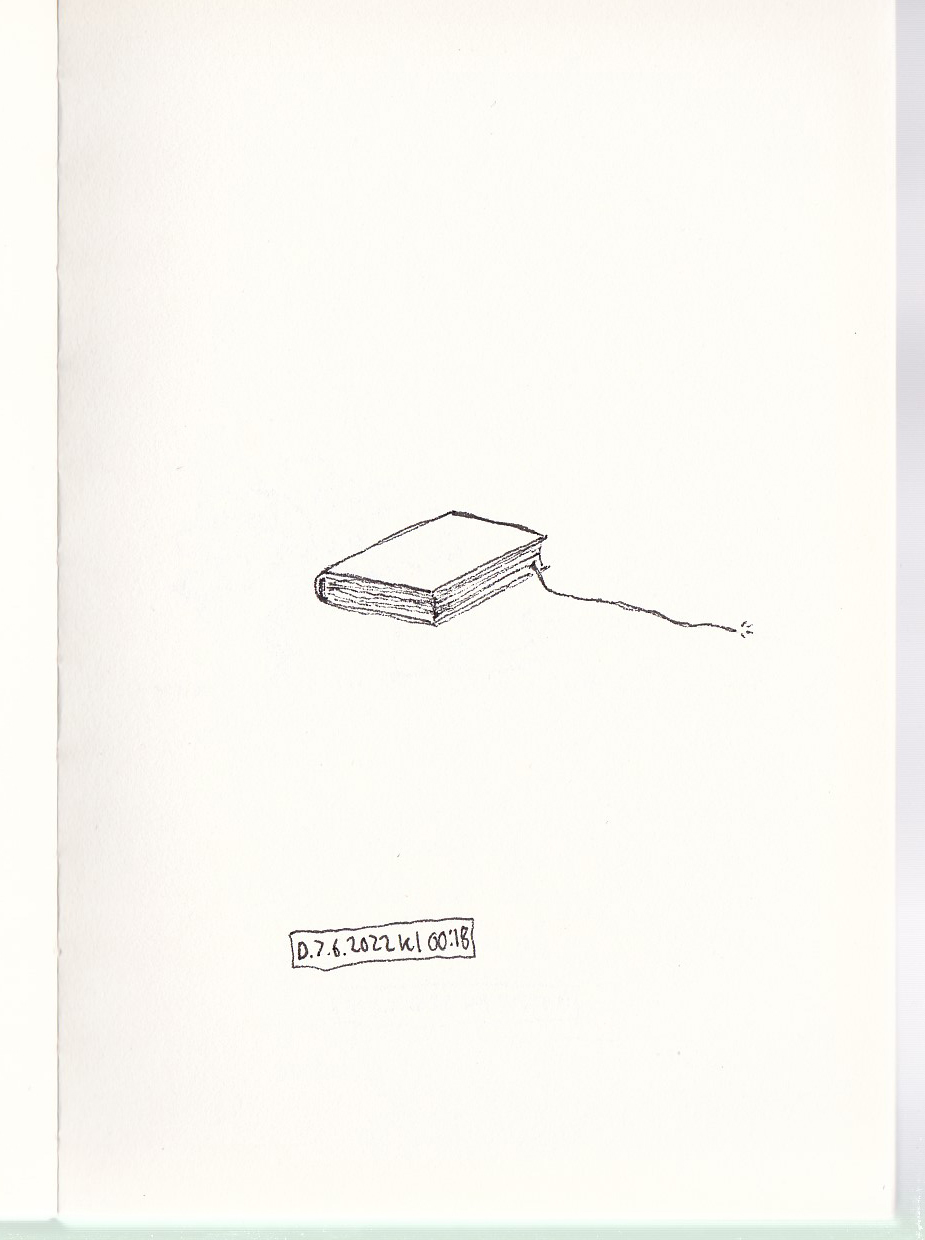 D.7.6.2022 kl 00:18